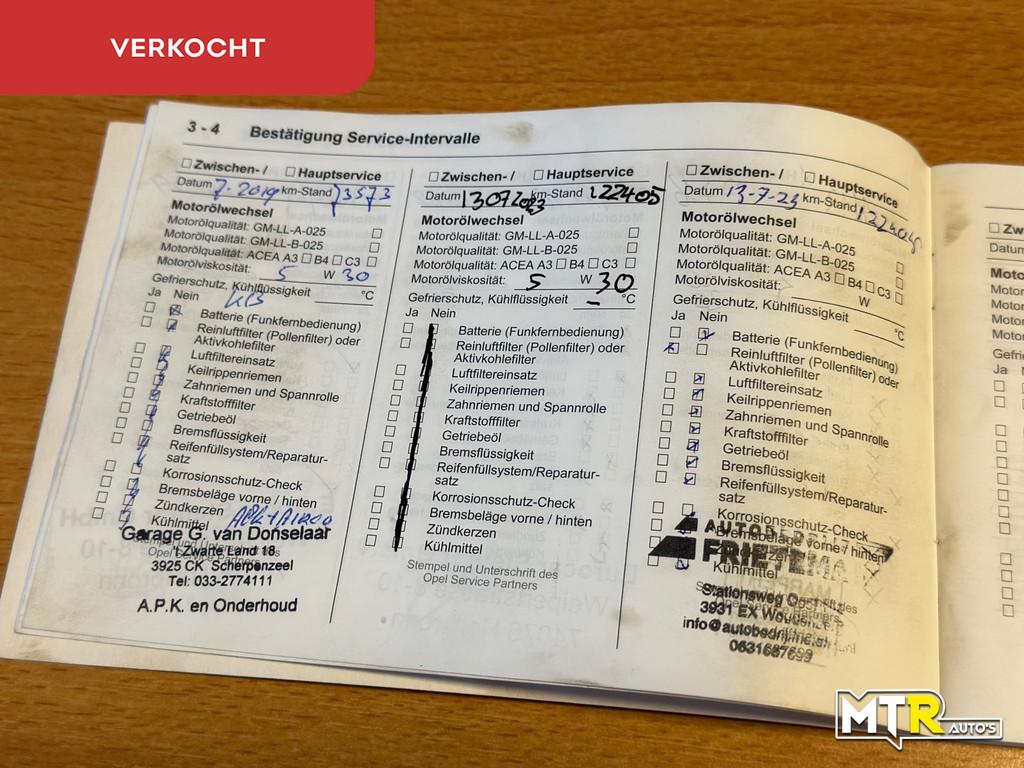 VERKOCHT
3 - 4 Bestätigung Service-Intervalle
Zwischen- / Hauptservice
Datum 7-2019 km-Stand 73573
Motorölwechsel
Motorölqualität: GM-LL-A-025
Motorölqualität: GM-LL-B-025
Motorölqualität: ACEA A3 B4 C3
Motorölviskosität: 5 W 30
Gefrierschutz, Kühlflüssigkeit °C
Ja Nein
Batterie (Funkfernbedienung)
Reinluftfilter (Pollenfilter) oder
Aktivkohlefilter
Luftfiltereinsatz
Keilrippenriemen
Zahnriemen und Spannrolle
Kraftstofffilter
Getriebeöl
Bremsflüssigkeit
Reifenfüllsystem/Reparatur-
satz
Korrosionsschutz-Check
Bremsbeläge vorne / hinten
Zündkerzen
Kühlmittel
Garage G. van Donselaar
't Zwarte Land 18
3925 CK Scherpenzeel
Tel: 033-2774111
A.P.K. en Onderhoud
Zwischen- / Hauptservice
Datum 13072023 km-Stand 122405
Motorölwechsel
Motorölqualität: GM-LL-A-025
Motorölqualität: GM-LL-B-025
Motorölqualität: ACEA A3 B4 C3
Motorölviskosität: 5 W 30
Gefrierschutz, Kühlflüssigkeit - °C
Ja Nein
Batterie (Funkfernbedienung)
Reinluftfilter (Pollenfilter) oder
Aktivkohlefilter
Luftfiltereinsatz
Keilrippenriemen
Zahnriemen und Spannrolle
Kraftstofffilter
Getriebeöl
Bremsflüssigkeit
Reifenfüllsystem/Reparatur-
satz
Korrosionsschutz-Check
Bremsbeläge vorne / hinten
Zündkerzen
Kühlmittel
Stempel und Unterschrift des
Opel Service Partners
Zwischen- / Hauptservice
Datum 13-7-23 km-Stand
Motorölwechsel
Motorölqualität: GM-LL-A-025
Motorölqualität: GM-LL-B-025
Motorölqualität: ACEA A3 B4 C3
Motorölviskosität: W
Gefrierschutz, Kühlflüssigkeit °C
Ja Nein
Batterie (Funkfernbedienung)
Reinluftfilter (Pollenfilter) oder
Aktivkohlefilter
Luftfiltereinsatz
Keilrippenriemen
Zahnriemen und Spannrolle
Kraftstofffilter
Getriebeöl
Bremsflüssigkeit
Reifenfüllsystem/Reparatur-
satz
Korrosionsschutz-Check
Bremsbeläge vorne / hinten
Kühlmittel
FRIETEMA
Stationsweg
3931 EX
MTR AUTO'S